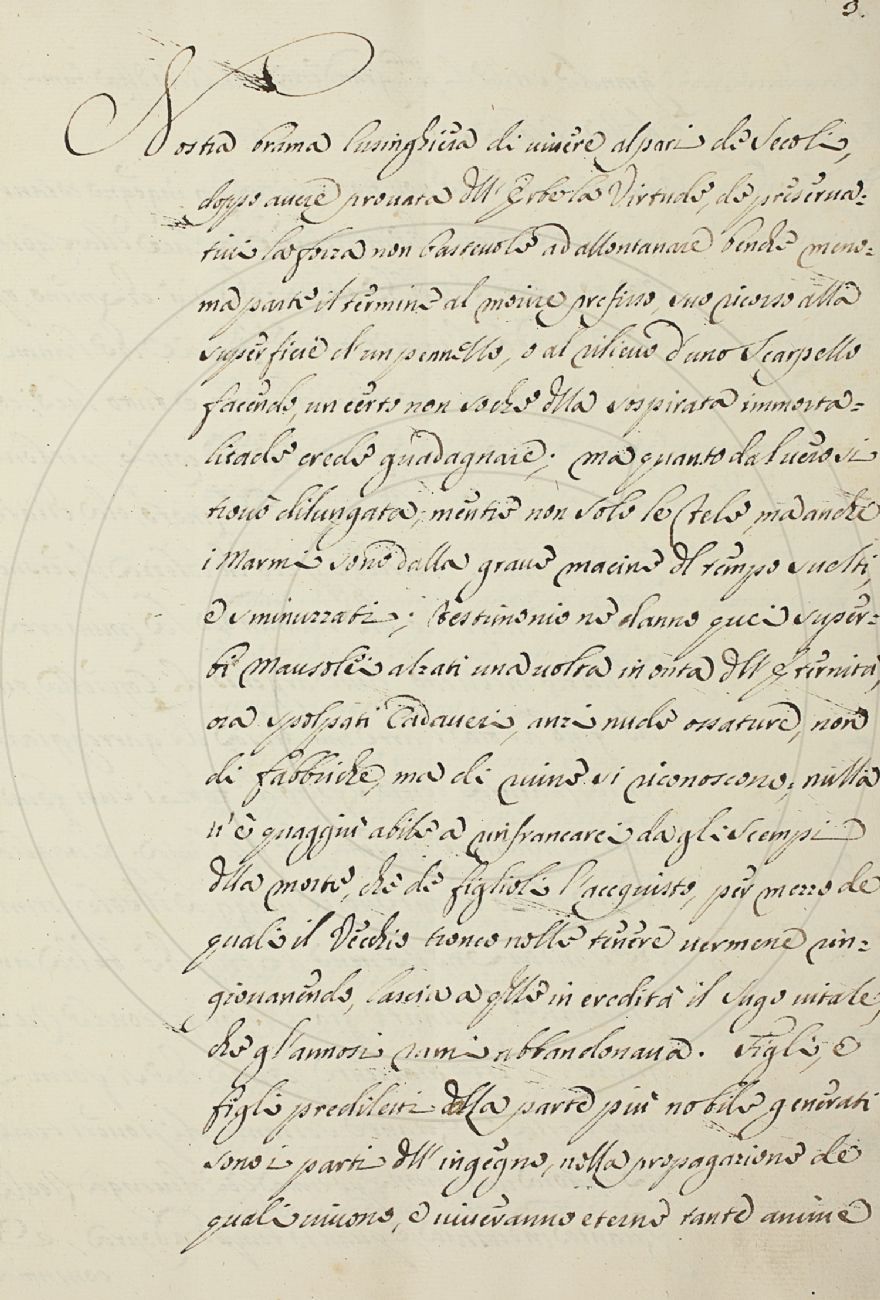 3.
Nostra brama lusinghiera di vivere al pari de Secoli,
doppo avere provata dll' Erbe la Virtude, de preserva=
tivi la forza non bastevole ad allontanare benche meno=
ma parte il termine al morire prefisso, suo ricorso alla
superficie d'un pennello, o al rilievo d'uno Scarpello
facendo, un certo non soche dlla sospirata immorta=
litade crede guadagnare; ma quanto dal vero si
trove dilungata, mentre non solo le Tele, ma anche
i Marmi sono dalla grave macine dl tempo svelti,
e sminuzzati; Testimonio ne danno quei super=
bi Mausolei alzati una volta in onta dll' Eternità,
ora spolpati Cadaveri, anzi nude ossature, non
di fabbriche, ma di ruine si riconoscono; nulla
v'è quaggiù abile a rinfrancarci da gli Scempi
dlla morte, che de figlioli l'acquisto, per mezzo de
quali il Vecchio tronco nelle tenere vermene rin=
giovanendo, lascia a qlle in eredità il sugo vitale,
che gl'annosi rami abbandonava. Figli, e
figli prediletti dlla parte più nobile generati
sono i parti dll' ingegno, nella propagazione de
quali vivono, e viveranno eterne tante anime